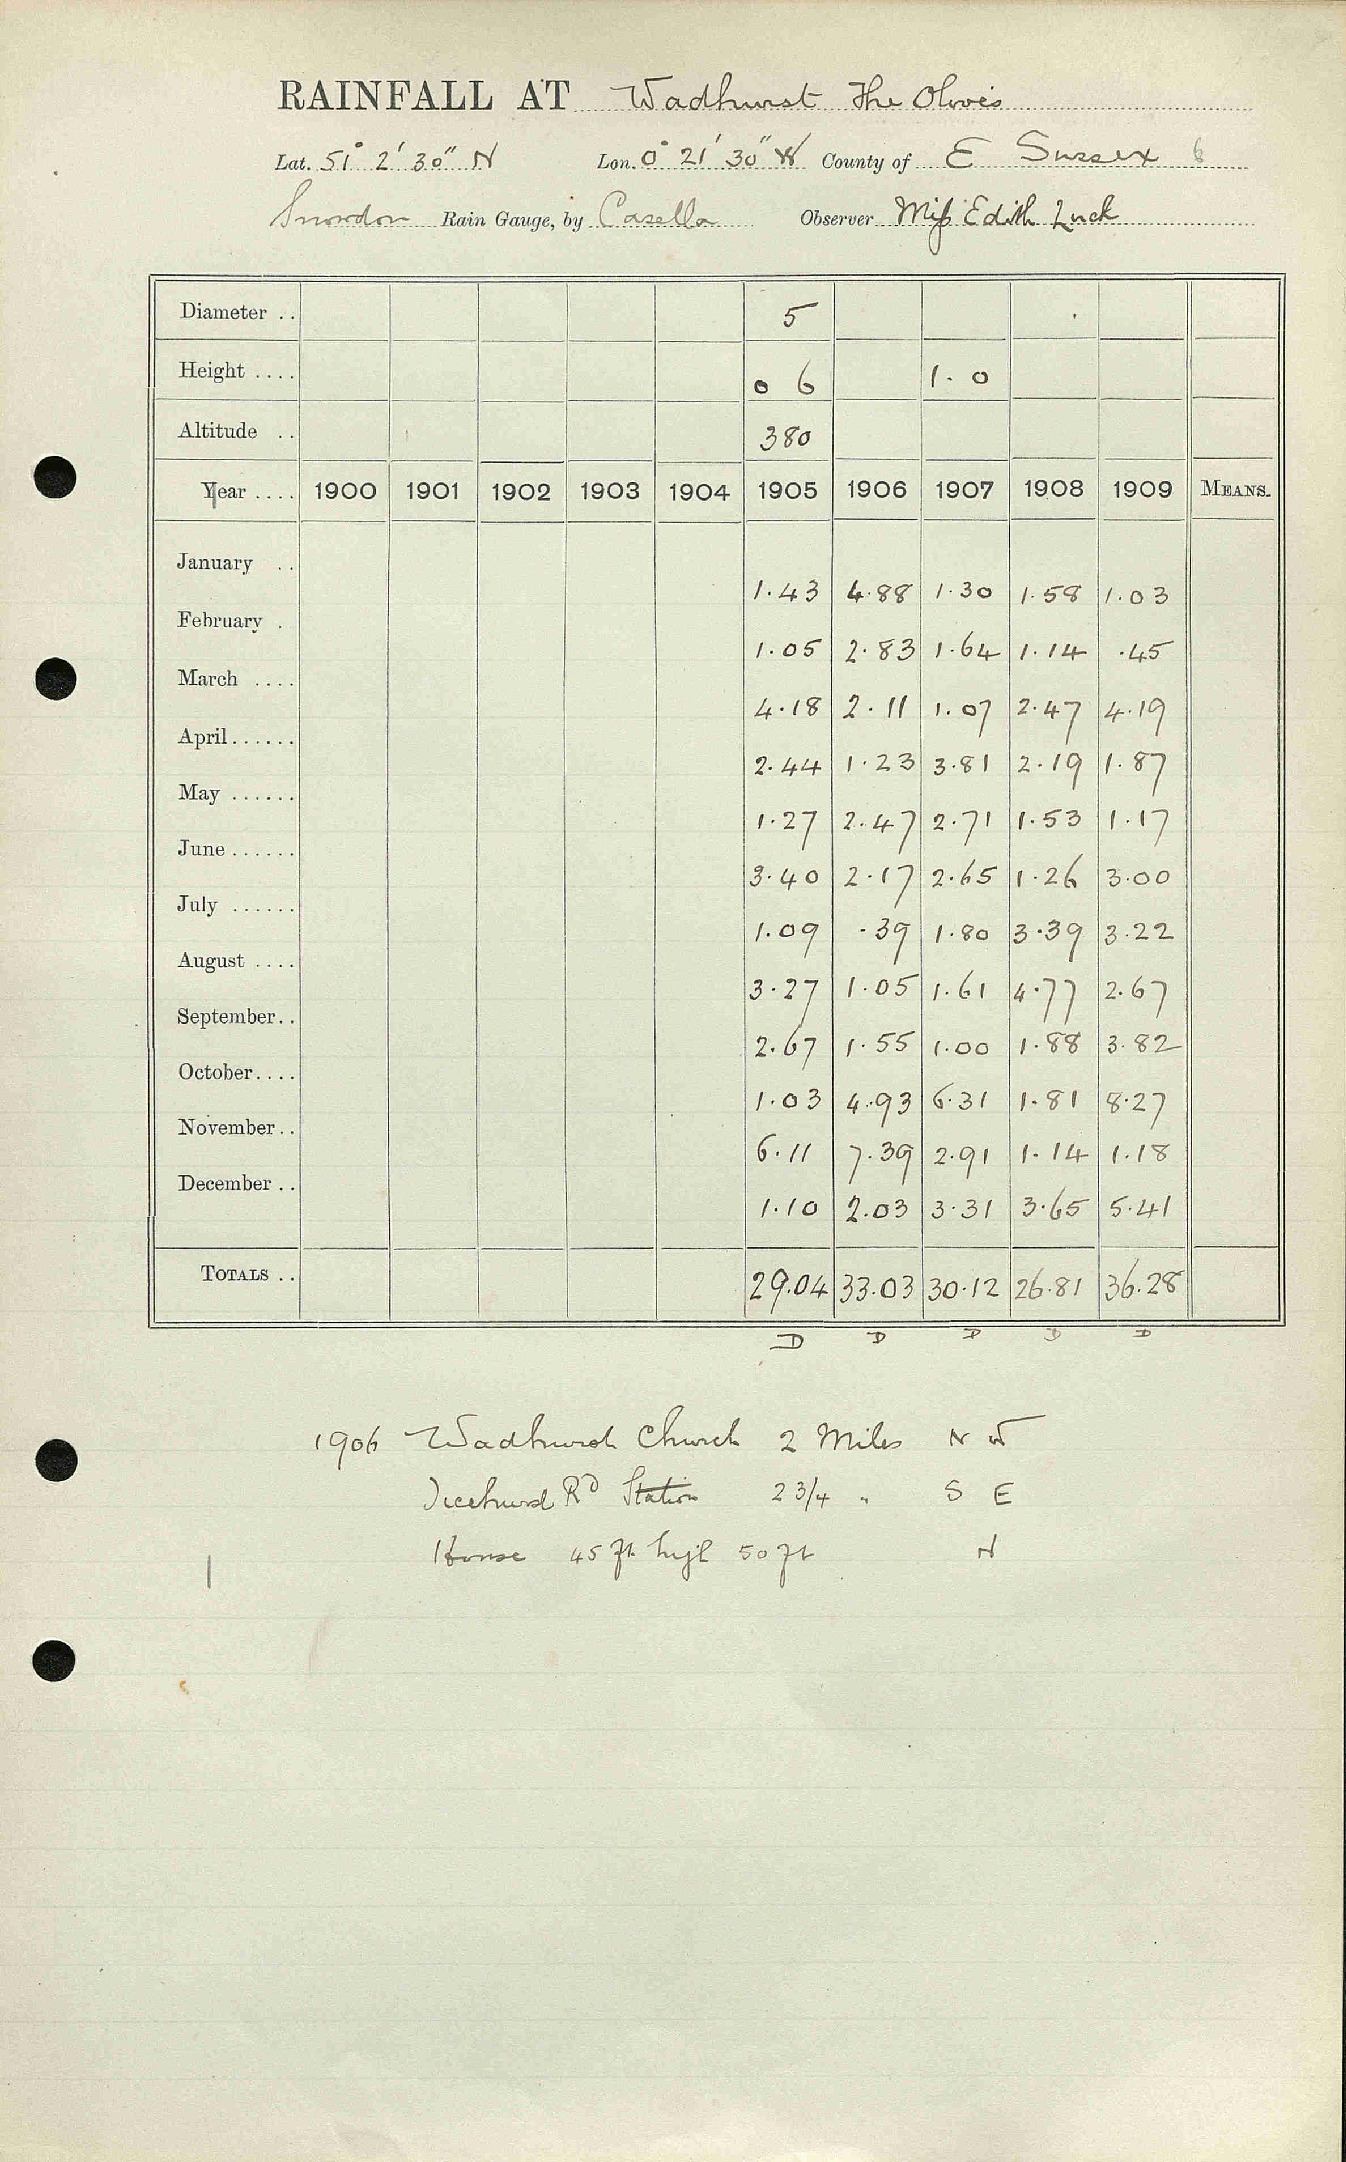 RAINFALL AT Wadhurst The Olives
Lat. 51° 2' 30" N Lon. 0° 21' 30" W County of E Sussex 6
Snowdon Rain Gauge, by Casella Observer Miss Edith Luck
Diameter .. 5
Height .... 0 6 1. 0
Altitude .. 380
Year .... 1900 1901 1902 1903 1904 1905 1906 1907 1908 1909 MEANS.
January .. 1.43 4.88 1.30 1.58 1.03
February . 1.05 2.83 1.64 1.14 .45
March .... 4.18 2.11 1.07 2.47 4.19
April...... 2.44 1.23 3.81 2.19 1.87
May ...... 1.27 2.47 2.71 1.53 1.17
June ...... 3.40 2.17 2.65 1.26 3.00
July ...... 1.09 .39 1.80 3.39 3.22
August .... 3.27 1.05 1.61 4.77 2.67
September.. 2.67 1.55 1.00 1.88 3.82
October.... 1.03 4.93 6.31 1.81 8.27
November.. 6.11 7.39 2.91 1.14 1.18
December .. 1.10 2.03 3.31 3.65 5.41
TOTALS .. 29.04 33.03 30.12 26.81 36.28
D D D D D
1906 Wadhurst Church 2 Miles N W
Ticehurst Rd Station 2 3/4 " S E
House 45 ft high 50 ft N